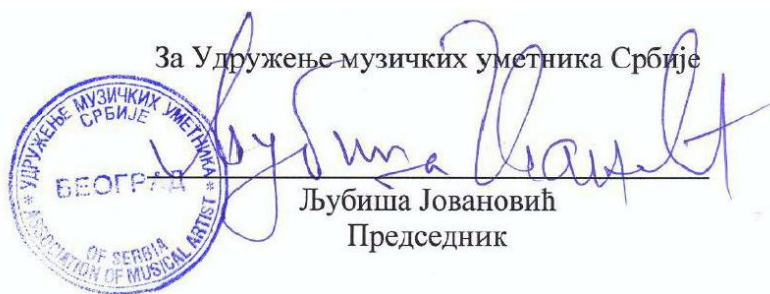 За Удружење музичких уметника Србије
УДРУЖЕЊЕ МУЗИЧКИХ УМЕТНИКА
СРБИЈЕ
БЕОГРАД
OF SERBIA
ASSOCIATION OF MUSICAL ARTIST
Љубиша Јовановић
Председник